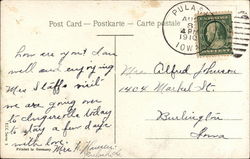 Post Card — Postkarte — Carte postale
PULASKI
AUG
8
4 PM
1910
IOWA
how are you I am
well and enjoying
Mrs Staffs visit
we are going over
to
to stay a few days
with love.
Mrs H
Mrs Alfred Johnson
1404 Market St.
Burlington
Iowa
Printed in Germany